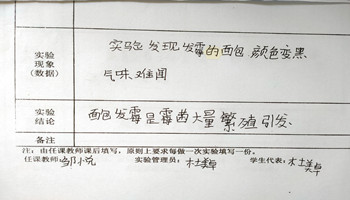 实验
现象
(数据)
实验发现发霉的面包 颜色变黑
气味难闻
实验
结论
面包发霉是霉菌大量繁殖引发.
备注
注：由任课教师课后填写，原则上要求每做一次实验填写一份。
任课教师：邹小悦 实验管理员： 学生代表：